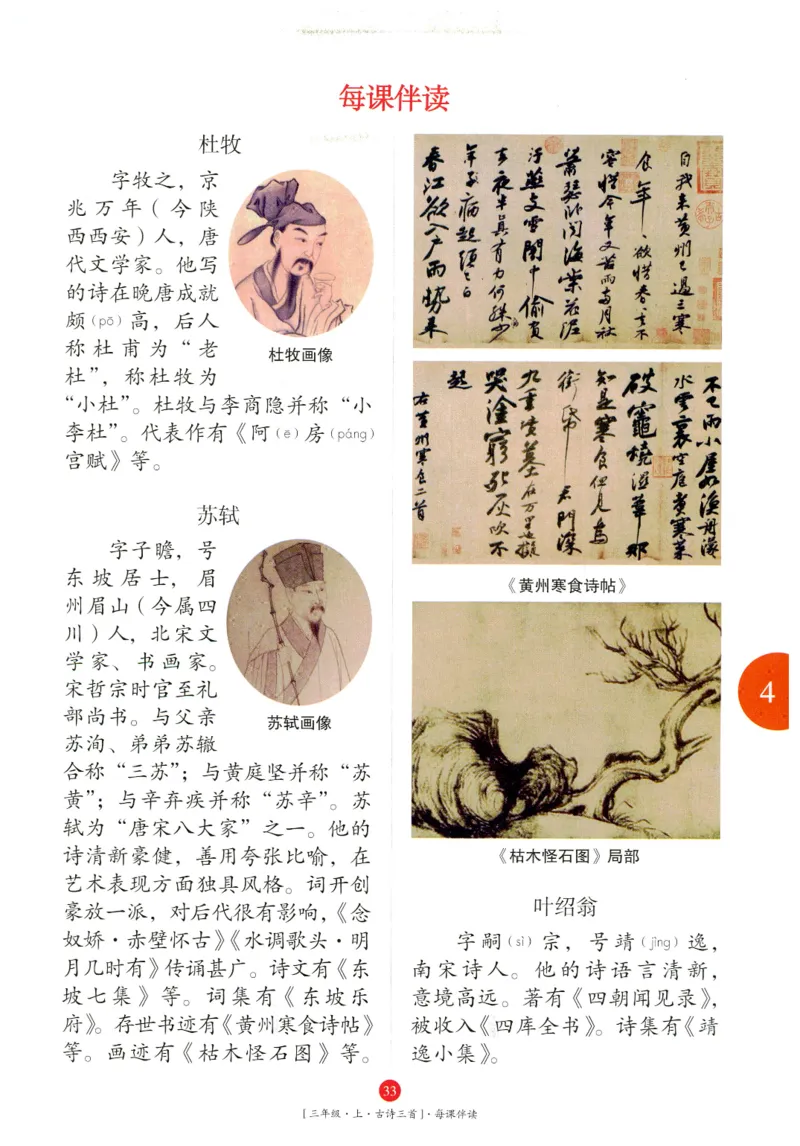 每课伴读
杜牧
字牧之，京
兆万年（今陕
西西安）人，唐
代文学家。他写
的诗在晚唐成就
颇（pō）高，后人
称杜甫为“老
杜”，称杜牧为
“小杜”。杜牧与李商隐并称“小
李杜”。代表作有《阿（ē）房（páng）
宫赋》等。
杜牧画像
苏轼
字子瞻，号
东坡居士，眉
州眉山（今属四
川）人，北宋文
学家、书画家。
宋哲宗时官至礼
部尚书。与父亲
苏洵、弟弟苏辙
合称“三苏”；与黄庭坚并称“苏
黄”；与辛弃疾并称“苏辛”。苏
轼为“唐宋八大家”之一。他的
诗清新豪健，善用夸张比喻，在
艺术表现方面独具风格。词开创
豪放一派，对后代很有影响，《念
奴娇·赤壁怀古》《水调歌头·明
月几时有》传诵甚广。诗文有《东
坡七集》等。词集有《东坡乐
府》。存世书迹有《黄州寒食诗帖》
等。画迹有《枯木怪石图》等。
苏轼画像
自我來黃州已過三寒
食年年欲惜春春去不
容惜今年又苦雨兩月秋
蕭瑟卧聞海棠花泥
汙燕支雪闇中偷負
去夜半真有力何殊少
年子病起須已白
春江欲入户雨勢來
不已雨小屋如漁舟濛
水雲裏空庖煮寒菜
破竈燒濕葦那
知是寒食但見烏
銜帋君門深
九重墳墓在万里也擬
哭塗窮死灰吹不
起
右黄州寒食二首
《黄州寒食诗帖》
《枯木怪石图》局部
叶绍翁
字嗣（sì）宗，号靖（jìng）逸，
南宋诗人。他的诗语言清新，
意境高远。著有《四朝闻见录》，
被收入《四库全书》。诗集有《靖
逸小集》。
4
33
[三年级·上·古诗三首]·每课伴读